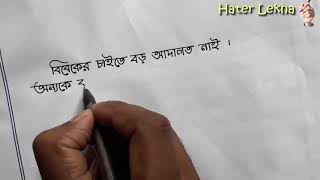 Hater Lekha
বিবেকের চাইতে বড় আদালত নাই ।
অন্যকে